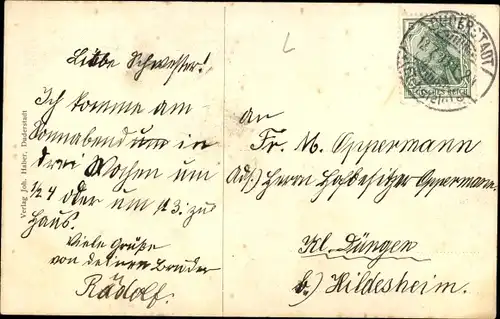 Liebe Schwester!
Ich komme am
Sonnabend um in
drei Wochen um
1/2 4 oder um 1/2 3. zu
Haus.
Viele Grüße
von deinem Bruder
Rudolf.
Verlag Joh. Haber, Duderstadt
DUDERSTADT
(EICHSFELD)
DEUTSCHES REICH
An
Fr. M. Oppermann
Adr.) Herrn Hofbesitzer Oppermann.
Kl. Düngen
b.) Hildesheim.